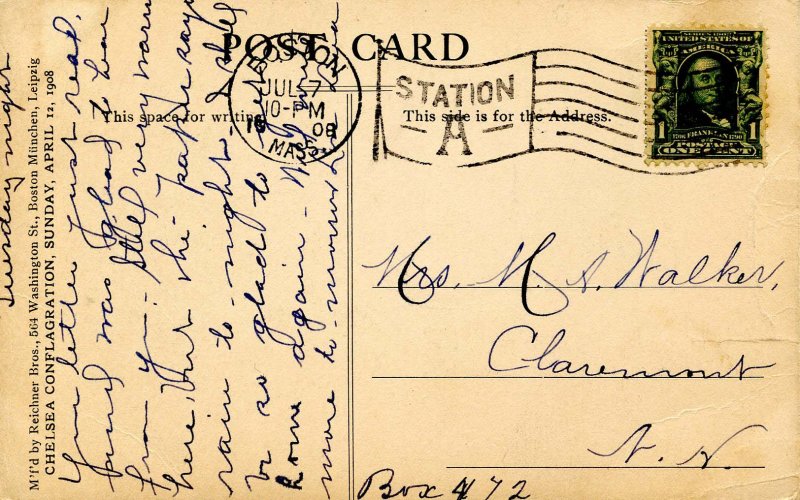 POST CARD
This space for writing
This side is for the Address.
BOSTON
JUL 7
10-PM
1908
MASS.
STATION
A
SERIES 1902
UNITED STATES OF
AMERICA
1706 FRANKLIN 1790
1 1
POSTAGE
ONE CENT
M'f'd by Reichner Bros., 564 Washington St., Boston München, Leipzig
CHELSEA CONFLAGRATION, SUNDAY, APRIL 12, 1908
Tuesday night
Your letter just read,
and was glad to hear
from you. Still very warm
here, but the paper says
rain to-night. I shall
be so glad to
home again.
more to-morrow
Mrs. M. A. Walker,
Claremont
N. H.
Box 472